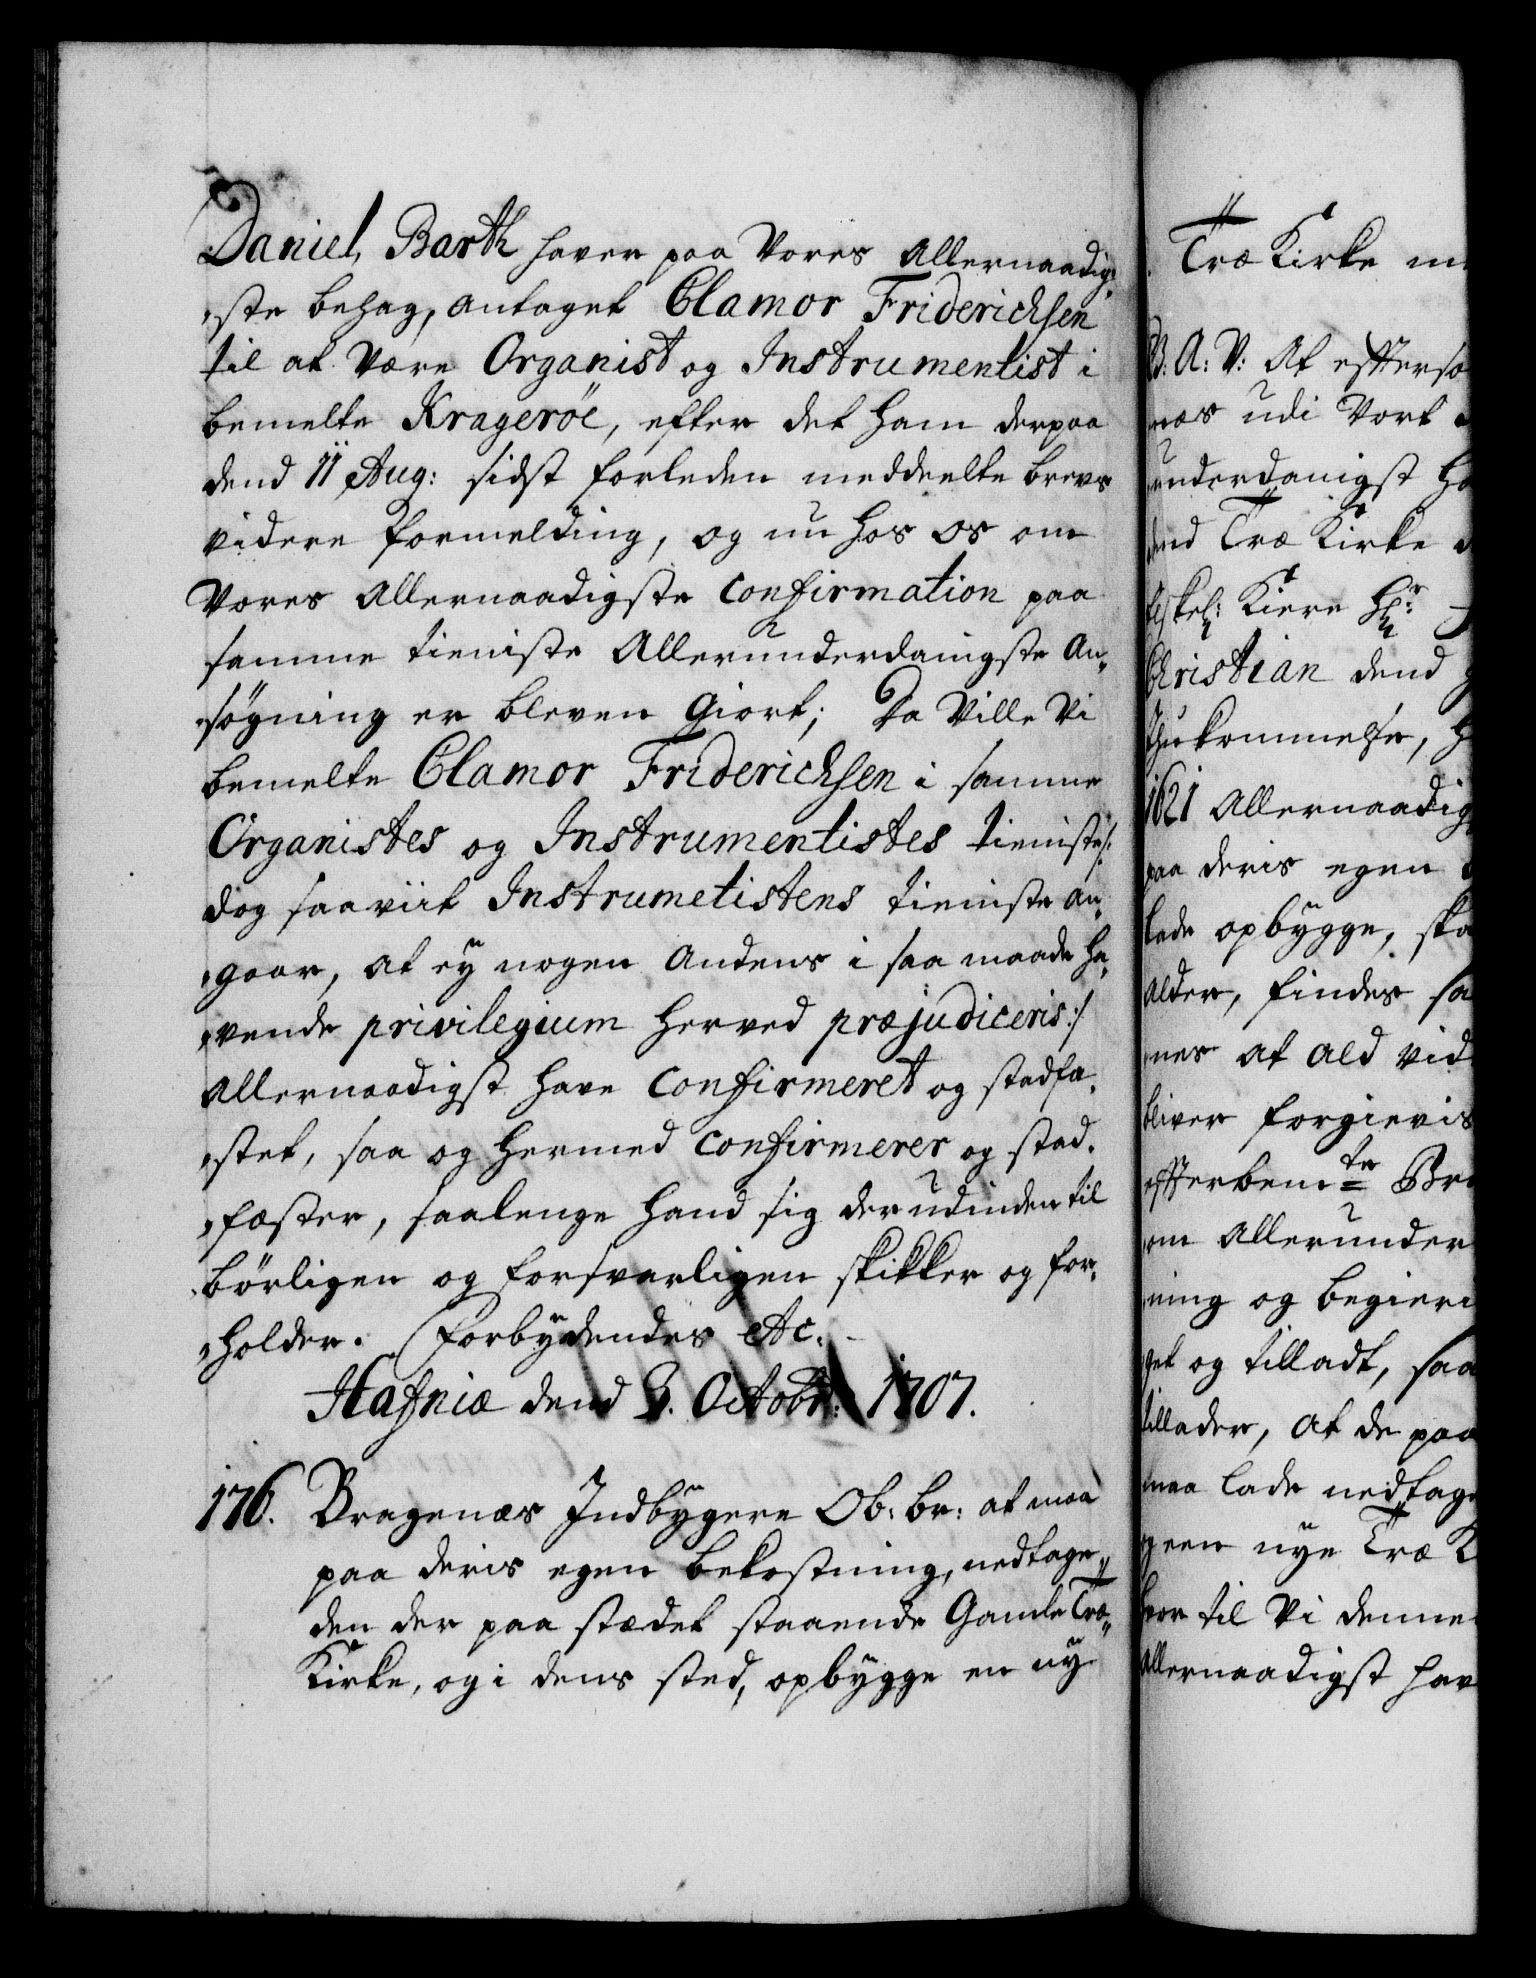 Daniel Barth haver paa Vores Allernaadig„
„ste behag, antaget Clamor Friderichsen
til at være Organist og Instrumentist i
bemelte Krageröe, efter det ham derpaa
dend 11 Aug: sidst forleden meddeelte brevs
videre formelding, og nu hos os om
Vores Allernaadigste Confirmation paa
samme tieniste Allerunderdanigste An„
„søgning er bleven Giort; Da Ville Vi
bemelte Clamor Friderichsen i samme
Organistes og Instrumentistes tieniste /:
dog saaviit Instrumetistens tieniste an„
„gaar, at ey nogen Andens i saa maade ha„
„vende privilegium herved præjudiceris :/
Allernaadigst have Confirmeret og stadfæ„
„stet, saa og hermed Confirmerer og stad„
„fæster, saalenge hand sig derudinden til
börligen og forsvarligen skikker og for„
„holder. Forbydendes &c.
Hafniæ dend 3. Octobr: 1707.
176. Bragenæs Indbygere Ob: br: at maa
paa deris egen bekostning, nedtage
den der paa stædet staaende Gamle Træ„
Kirke, og i dens sted, opbygge en ny
Træ Kirke
B: A: V: At efftersom
næs udi Vort
underdanigst
dend Træ Kirke
elskel: Kiere Hr:
Christian dend
Ihukommelse,
1621 Allernaadigst
paa deris egen
lade opbygge,
alder, findes
nes at ald
bliver forgievis
effterbemte
om Allerunder
ning og begiering
get og tilladt, saa
tillader, at de paa
maa lade nedtage
een nye Træ
hvor til Vi denne
Allernaadigst